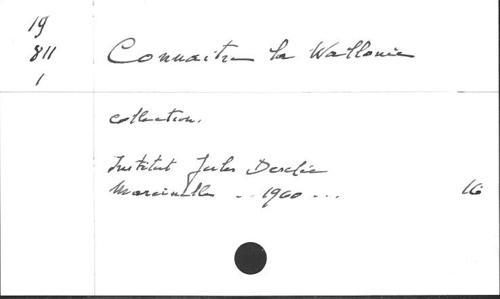 19
811
1
Connaitre la Wallonie
collection.
Institut Jules Destrée
Marcinelle - . 1960 ...
16